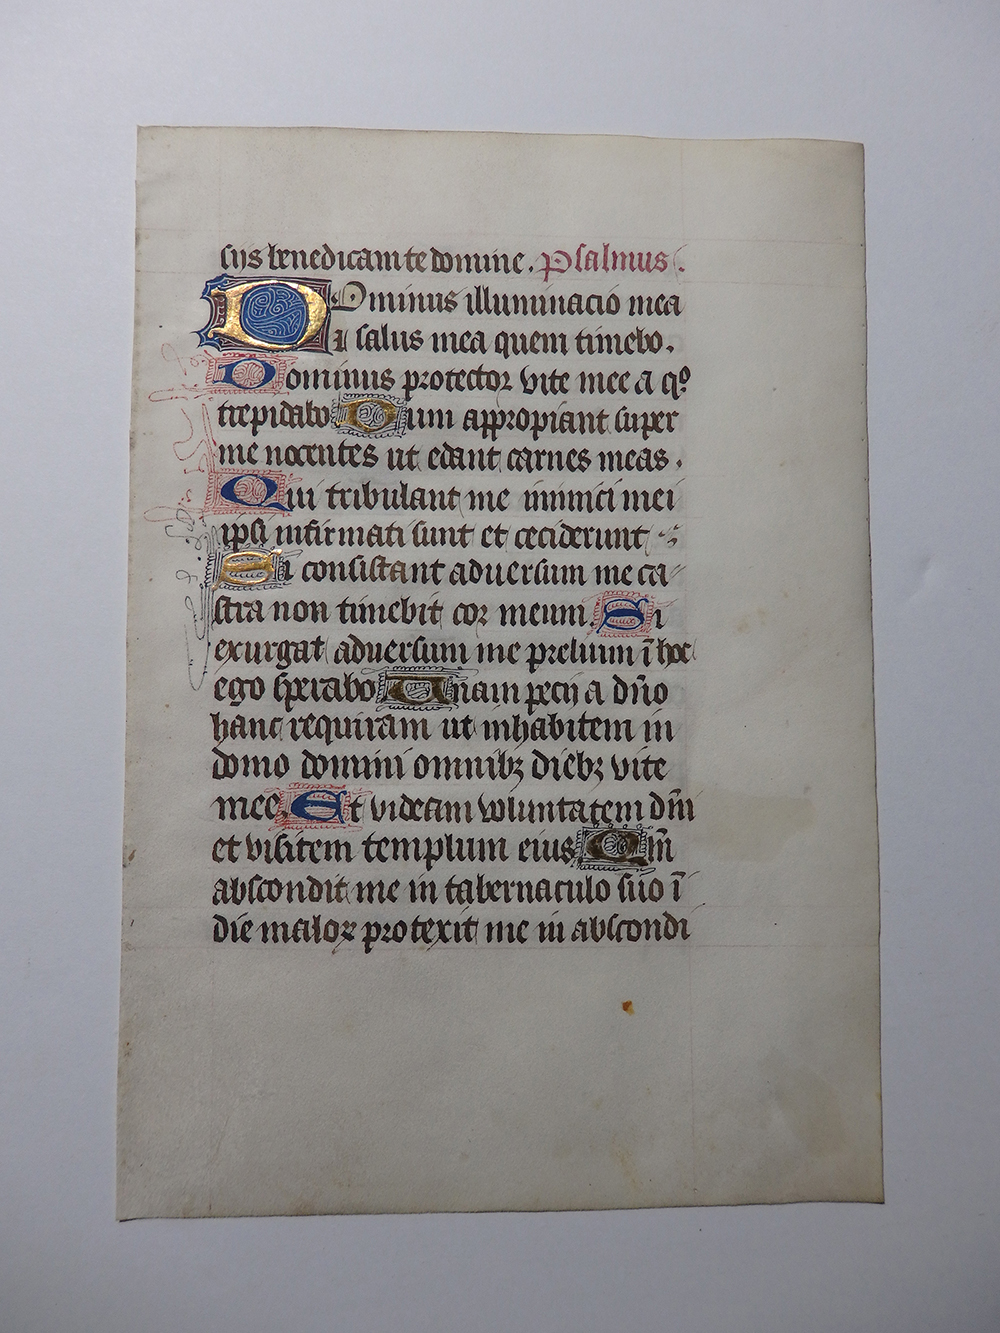 sijs benedicam te domine. Psalmus.
Dominus illuminacio mea
⁊ salus mea quem timebo.
Dominus protector vite mee a qº
trepidabo Dum appropiant super
me nocentes ut edant carnes meas.
Qui tribulant me inimici mei
ipsi infirmati sunt et ceciderunt
Si consistant adversum me ca
stra non timebit cor meum. Si
exurgat adversum me prelium ī hoc
ego sperabo Unam pecij a dño
hanc requiram ut inhabitem in
domo domini omnibꝫ diebꝫ vite
mee. Et videam voluntatem dñi
et visitem templum eius Qm̄
abscondit me in tabernaculo suo ī
die maloꝝ protexit me in abscondi